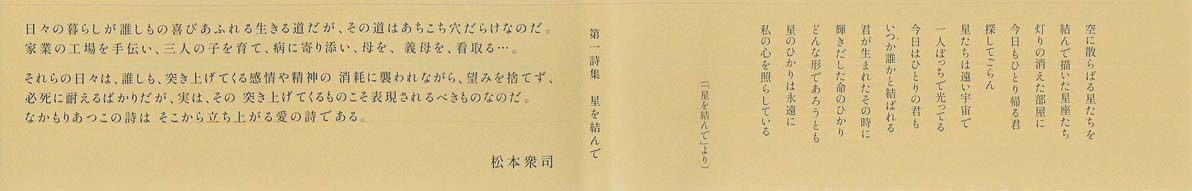 日々の暮らしが誰しもの喜びあふれる生きる道だが、その道はあちこち穴だらけなのだ。
家業の工場を手伝い、三人の子を育て、病に寄り添い、母を、義母を、看取る…。
それらの日々は、誰しも、突き上げてくる感情や精神の 消耗に襲われながら、望みを捨てず、
必死に耐えるばかりだが、実は、その 突き上げてくるものこそ表現されるべきものなのだ。
なかもりあつこの詩は そこから立ち上がる愛の詩である。
松本衆司
第一詩集 星を結んで
空に散らばる星たちを
結んで描いた星座たち
灯りの消えた部屋に
今日もひとり帰る君
探してごらん
星たちは遠い宇宙で
一人ぼっちで光ってる
今日はひとりの君も
いつか誰かと結ばれる
君が生まれたその時に
輝きだした命のひかり
どんな形であろうとも
星のひかりは永遠に
私の心を照らしている
(「星を結んで」より)